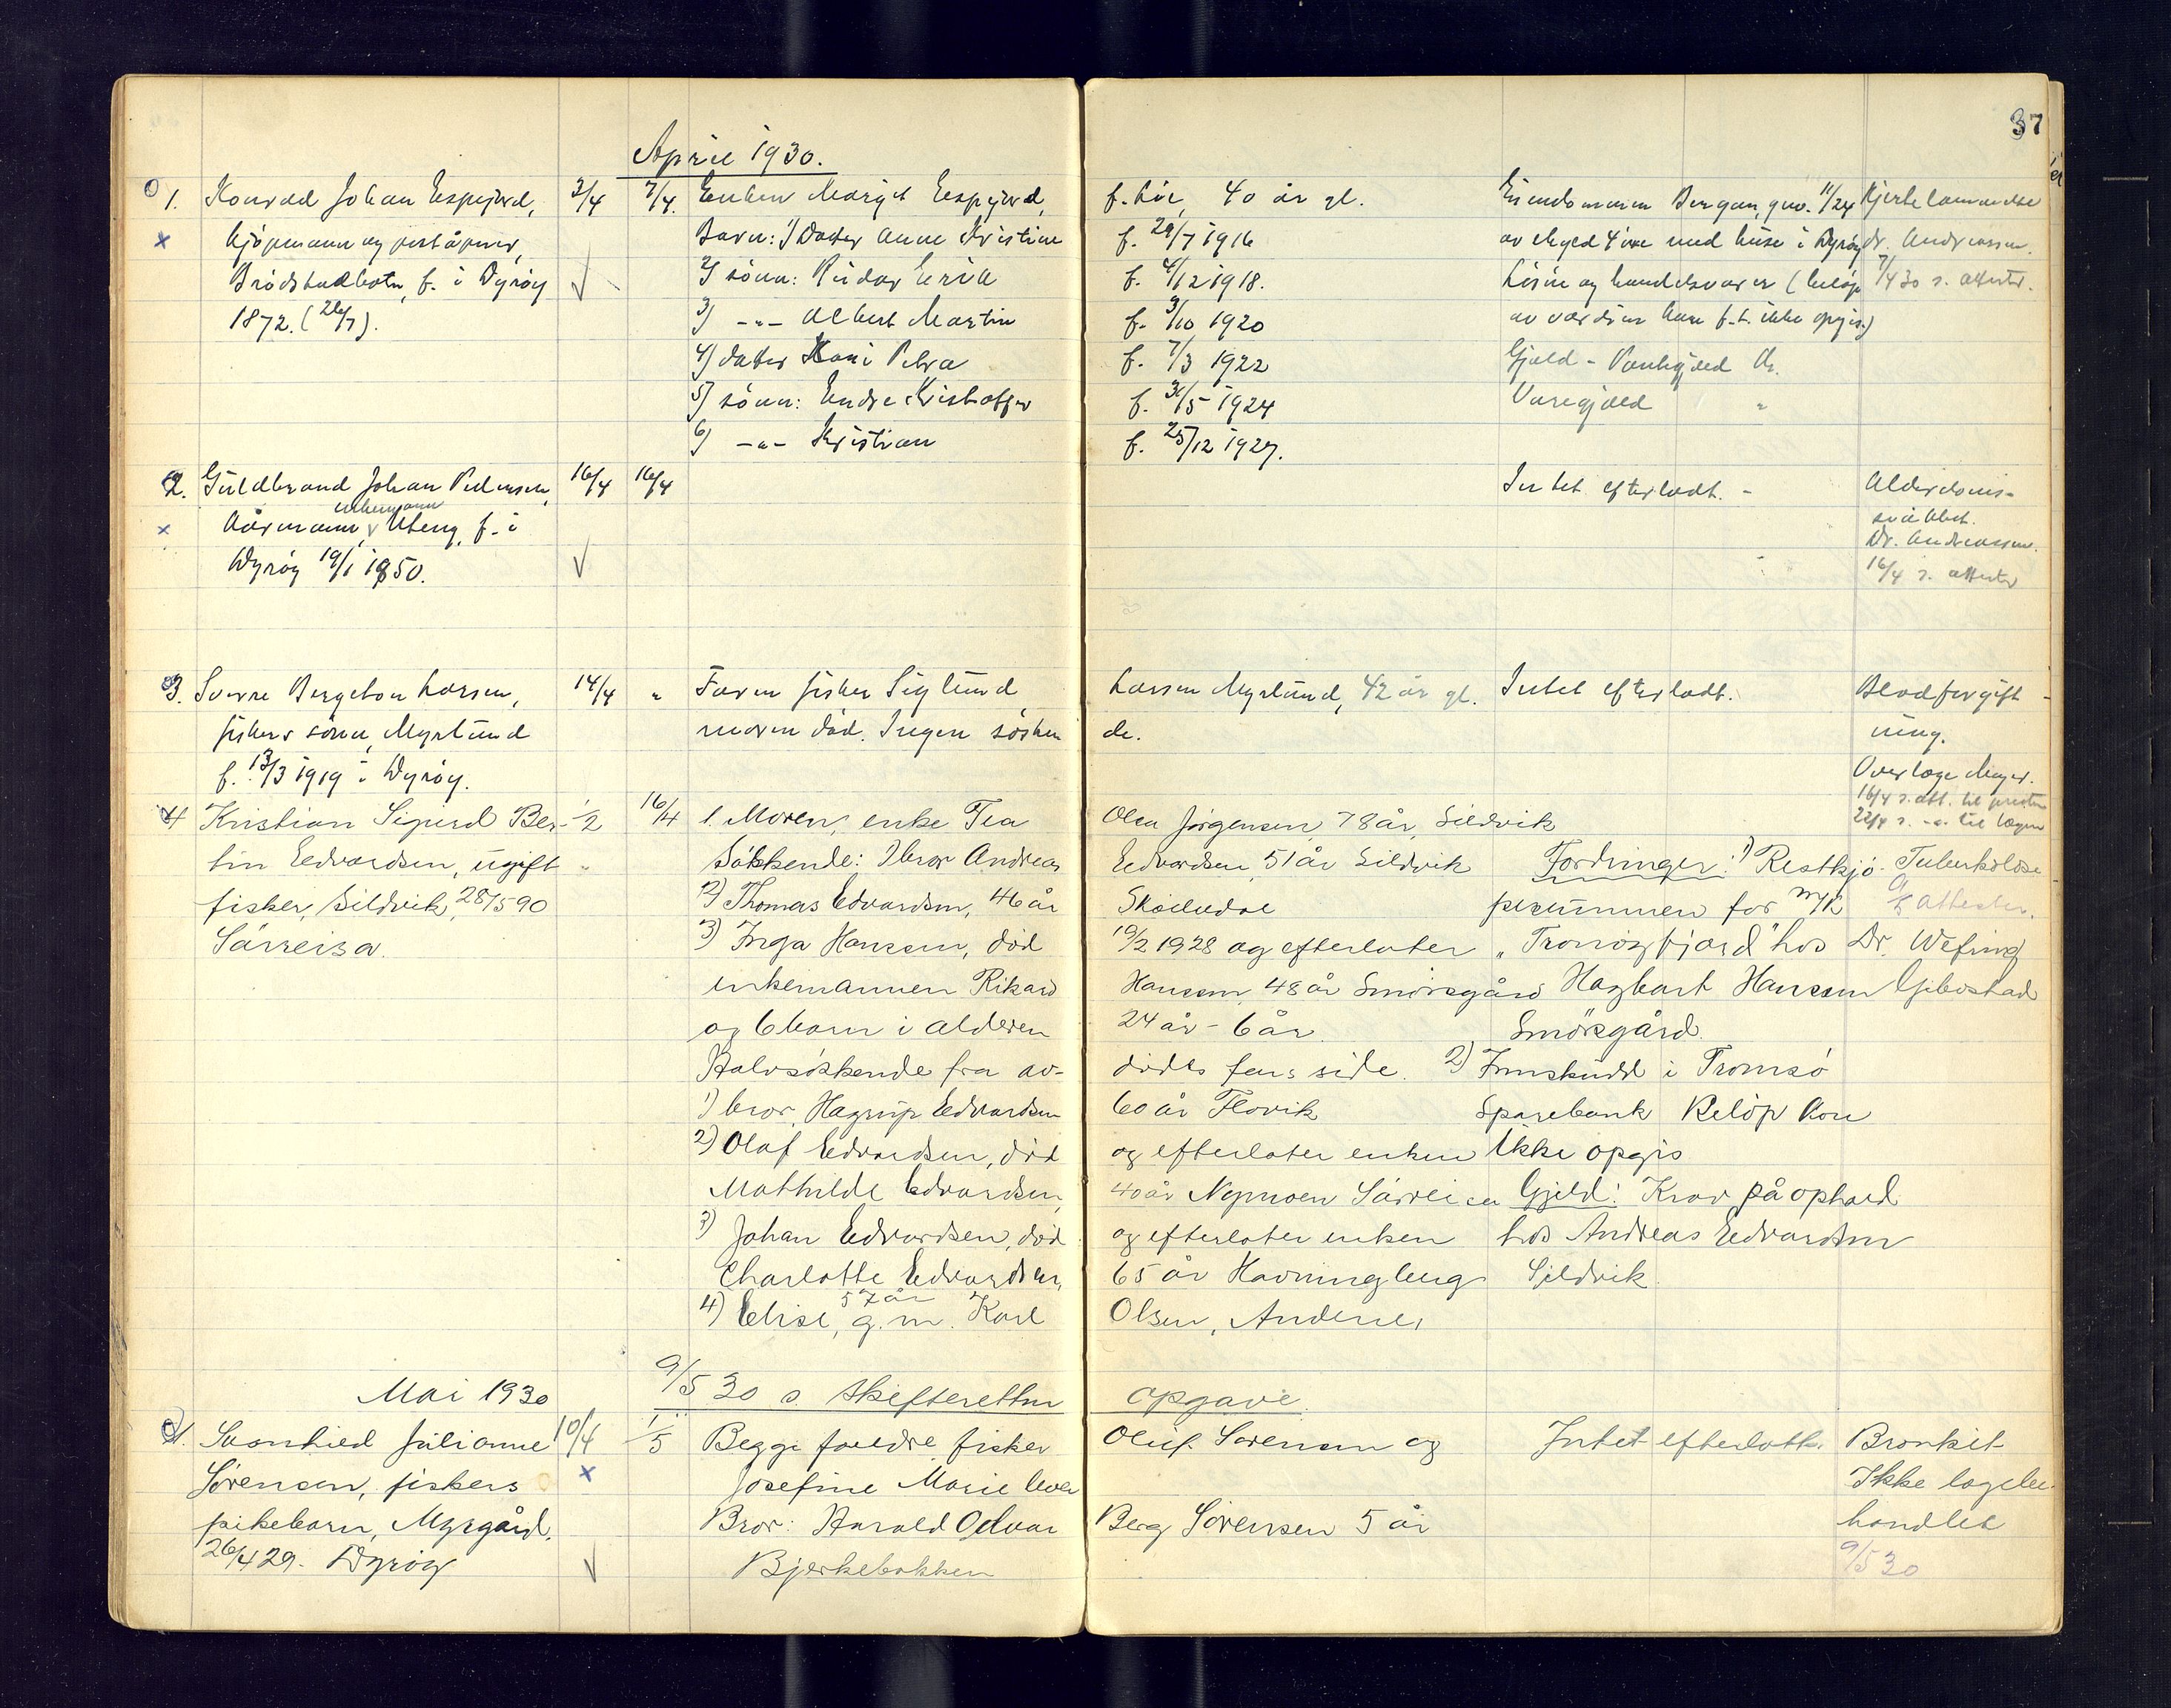 37
April 1930.
1. Konrad Johan Espejord, 3/4 7/4. Enken Margit Espejord, f. Lie, 40 år gl. Eiendommen Bergan, gno. 11/24 Hjertelammelse
kjöpmann og poståpner, Barn: 1) Datter Anne Kristine f. 29/7 1916 av skyld 4 øre med huse i Dyröy dr. Andreassen.
Brödstadbotn, f. i Dyröy 2) sönn: Reidar Erik f. 4/12 1918. Lösöre og handelsvarer (belöp 7/4 30 s. attester.
1872. (26/7). 3) -"- Albert Martin f. 3/10 1920 av værdien kan f.t. ikke opgis)
4) datter Petra f. 7/3 1922 Gjeld - Pantegjeld Kr.
5) sönn: Endre Kristoffer f. 31/5 1924 Varegjeld "
6) -"- Kristian f. 25/12 1927.
2. Guldbrand Johan Pedersen, 16/4 16/4 Intet efterladt. - Alderdoms-
enkemann
kårmann, f. i svækket.
Dr. Andreassen.
Dyröy 19/1 1850. 16/4 s. attester
3. Sverre Bergeton Larsen, 14/4 " Faren fisker Siglund Larsen Myrlund, 42 år gl. Intet efterladt. Blodforgift-
fiskers sönn, Myrlund moren död. Ingen sösken de. ning.
f. 13/3 1919 i Dyröy. Overlæge Meyer.
16/4 s. att. til presten
22/4 s. -"- til lægen
4 Kristian Sigurd Ber- 1/2 16/4 1. Moren, enke Tea Olea Jörgensen, 78 år, Sildvik
tin Edvardsen, ugift " Söskende: 1 bror Andreas Edvardsen, 51 år Sildvik Fordringer: 1) Restkjö- Tuberkolose
fisker, Sildvik, 28/5 90 2) Thomas Edvardsen, 46 år pesummen for m/k attester.
Sörreisa. 3) Inga Hansen, död 19/2 1928 og efterlater "Tromsöfjord" hos Dr. Wefring
enkemannen Rikard Hansen, 48 år Smörsgård Hagbart Hansen Gibostad
og 6 barn i alderen 24 år - 6 år. Smörsgård.
Halvsöskende fra av- dödes fars side. 2) Innskudd i Tromsö
1) bror, Hagrup Edvardsen 60 år Flovik Sparebank Belöp kan
2) Olaf Edvardsen, död og efterlater enken ikke opgis
Mathilde Edvardsen, 40 år Nymoen Sörreisa Gjeld: Krav på ophold
3) Johan Edvardsen, död og efterlater enken hos Andreas Edvardsen
Charlotte Edvardsen, 65 år Havningberg Sildvik.
57 år
4) Elise, g. m. Karl Olsen, Andenes
Mai 1930 9/5 30 s. skifteretten opgave.
1. Svanhild Julianne 10/4 1/5 Begge foreldre, fisker Oluf Sörensen og Intet efterlatt. Bronkit
Sörensen, fiskers Josefine Marie lever Ikke lægebe-
pikebarn, Myrgård, Bror: Harald Odvar Berg Sörensen 5 år handlet
26/4 29. Dyröy Bjerkebakken 9/5 30